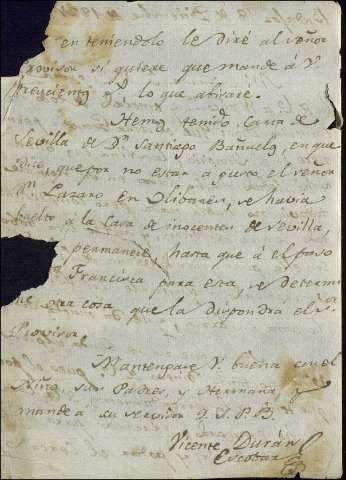 en teniendolo le diré al señor
Provisor si quiere que mande á V
lo que abisare.
Hemos tenido Carta de
Sevilla de Dn. Santiago Bañuelos, en que
dice que por no estar a gusto el señor
Dn. Lazaro en Olibares, se havia
buelto a la Casa de inocentes de Sevilla,
permanecie, hasta que á el
Francisca para esta, se determi
otra cosa que la dispondrá el Sor.
Provisor.
Mantengase V. buena con el
Niño sus Padres, y Hermana, y
mande a su servidor Q.S.P.B.
Vicente Durán
Escobar